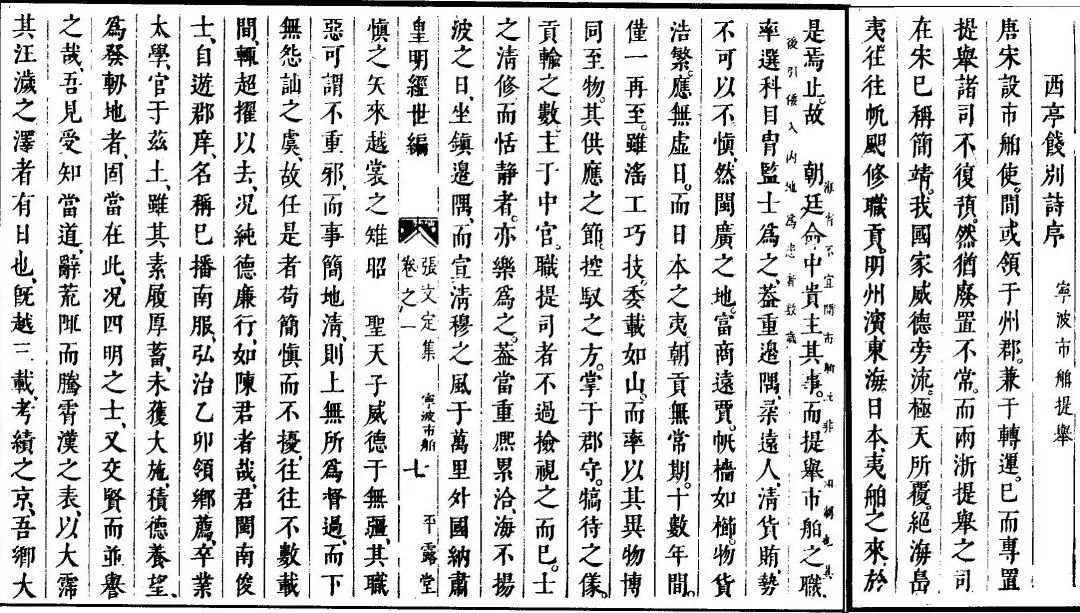 西亭餞別詩序 寧波市舶提舉
唐宋設市舶使。間或領于州郡。兼于轉運。已而專置
提舉諸司不復預。然猶廢置不常。而兩浙提舉之司
在宋已稱簡靖。我國家威德旁流。極天所覆。絕海島
夷。往往帆颿修職貢。明州濱東海。日本夷舶之來。於
是焉止。故 朝廷命中貴主其事。而提舉市舶之職
後引倭入内地為患者數歲
率選科目胄監士為之。葢重邊隅。柔遠人。清貨賄。勢
不可以不慎。然閩廣之地。富商遠賈。帆檣如櫛。物貨
浩繁。應無虛日。而日本之夷。朝貢無常期。十數年間。
僅一再至。雖滛工巧技。委載如山。而率以其異物博
同至物。其供應之節。控馭之方。掌于郡守。犒待之儀。
貢輸之數。主于中官。職提司者不過檢視之而已。士
之清修而恬静者。亦樂為之。葢當重熈累洽。海不揚
波之日。坐鎮邊隅。而宣清穆之風于萬里外國納肅
皇明經世編 張文定集 卷之一 寧波市舶 七 平露堂
慎之矢。來越裳之雉。昭 聖天子威德于無疆。其職
惡可謂不重邪。而事簡地清。則上無所為督過。而下
無怨訕之虞。故任是者苟簡慎而不擾。往往不數載
間。輒超擢以去。况純德廉行。如陳君者哉。君閩南俊
士。自遊郡庠。名稱已播南服。弘治乙卯領鄉薦。卒業
太學。官于茲土。雖其素履厚蓄。未獲大施。積德養望。
為發軔地者。固當在此。况四明之士。又交賢而並譽
之哉。吾見受知當道。辭荒陬而騰霄漢之表。以大霈
其汪濊之澤者有日也。旣越三載。考績之京。吾鄉大